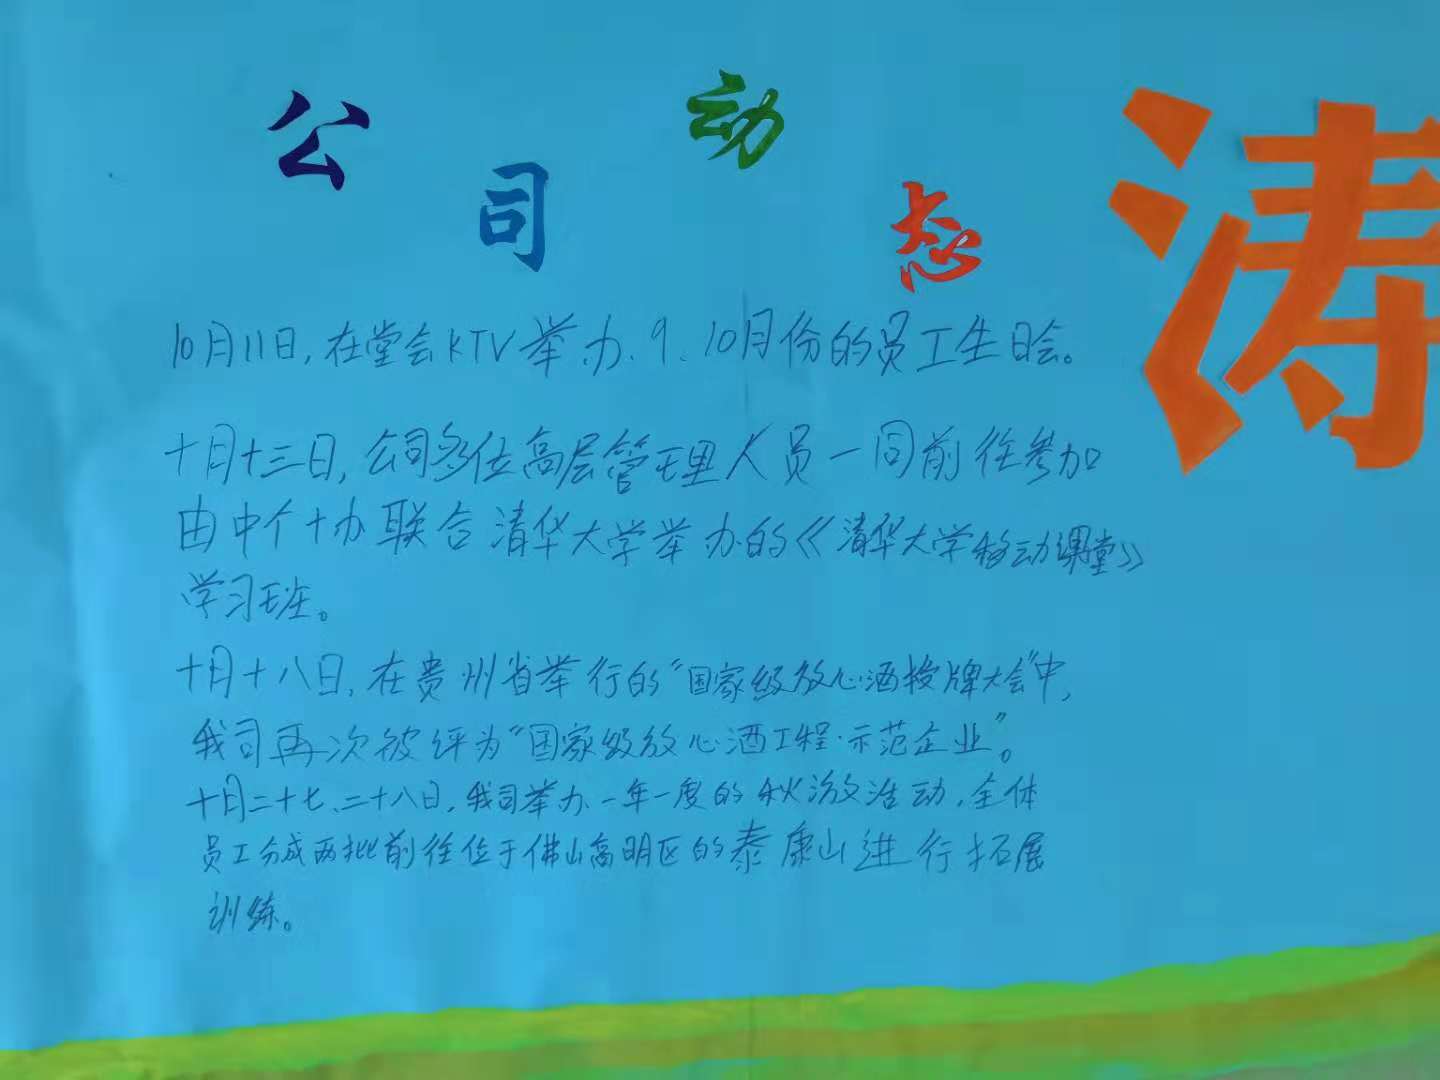 公司动态
涛
10月11日,在堂会KTV举办、9、10月份的员工生日会。
十月十三日,公司多位高层管理人员一同前往参加
由中个十办联合清华大学举办的《清华大学移动课堂》
学习班。
十月十八日,在贵州省举行的“国家级放心酒授牌大会”中,
我司再次被评为“国家级放心酒工程·示范企业”。
十月二十七、二十八日,我司举办一年一度的秋激活动,全体
员工分成两批前往位于佛山高明区的泰康山进行拓展
训练。